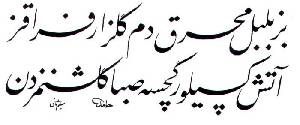 بز بلبل محرق دم گلزار فراقز
آتش کسیلور گچسه صبا گلشنمزدن